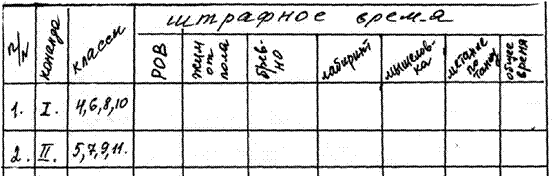 штрафное время
п/п команда классы РОВ жим от пола брев-но лабиринт мышелов-ка метание по танку общее время
1. I. 4,6,8,10
2. II. 5,7,9,11.